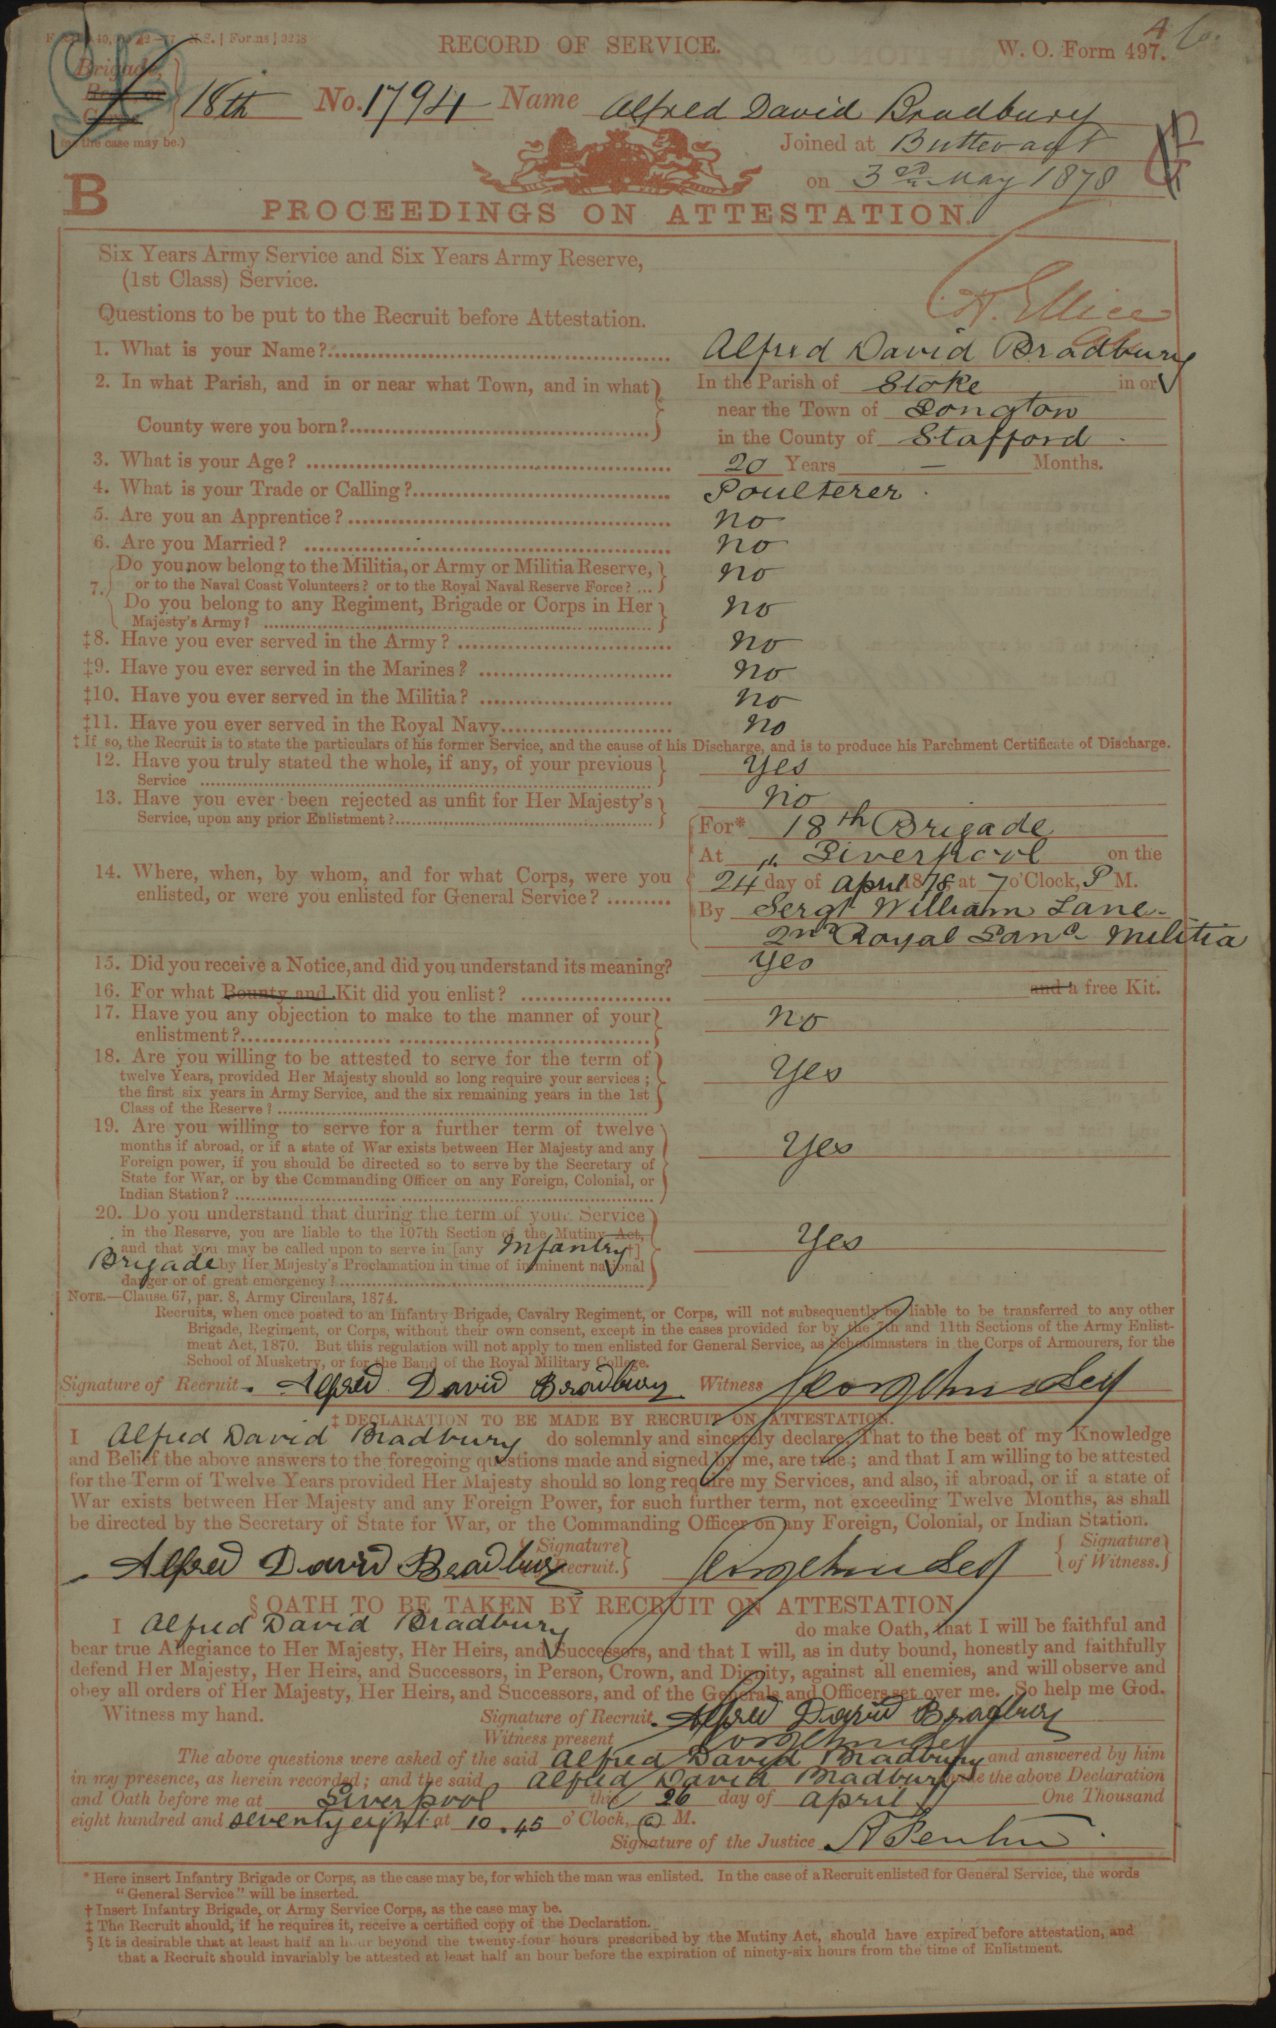 RECORD OF SERVICE.
W. O. Form 497.
Brigade,
18th No. 1794 Name Alfred David Bradbury
(as the case may be.)
Joined at Buttevant
on 3rd May 1878
B
PROCEEDINGS ON ATTESTATION.
Six Years Army Service and Six Years Army Reserve,
(1st Class) Service.
Questions to be put to the Recruit before Attestation.
1. What is your Name? Alfred David Bradbury
2. In what Parish, and in or near what Town, and in what In the Parish of Stoke in or
near the Town of Longton
County were you born? in the County of Stafford
3. What is your Age? 20 Years — Months.
4. What is your Trade or Calling? Poulterer
5. Are you an Apprentice? no
6. Are you Married? no
7. Do you now belong to the Militia, or Army or Militia Reserve, no
or to the Naval Coast Volunteers? or to the Royal Naval Reserve Force? ...
Do you belong to any Regiment, Brigade or Corps in Her no
Majesty's Army?
‡8. Have you ever served in the Army? no
‡9. Have you ever served in the Marines? no
‡10. Have you ever served in the Militia? no
‡11. Have you ever served in the Royal Navy. no
‡ If so, the Recruit is to state the particulars of his former Service, and the cause of his Discharge, and is to produce his Parchment Certificate of Discharge.
12. Have you truly stated the whole, if any, of your previous yes
Service
13. Have you ever been rejected as unfit for Her Majesty's no
Service, upon any prior Enlistment?
For* 18th Brigade
At Liverpool on the
14. Where, when, by whom, and for what Corps, were you 24 day of April 1878 at 7 o'Clock, P M.
enlisted, or were you enlisted for General Service? By Sergt William Lane
2nd Royal Lanc Militia
15. Did you receive a Notice, and did you understand its meaning? yes
16. For what Bounty and Kit did you enlist? and a free Kit.
17. Have you any objection to make to the manner of your no
enlistment?
18. Are you willing to be attested to serve for the term of yes
twelve Years, provided Her Majesty should so long require your services;
the first six years in Army Service, and the six remaining years in the 1st
Class of the Reserve?
19. Are you willing to serve for a further term of twelve yes
months if abroad, or if a state of War exists between Her Majesty and any
Foreign power, if you should be directed so to serve by the Secretary of
State for War, or by the Commanding Officer on any Foreign, Colonial, or
Indian Station?
20. Do you understand that during the term of your Service yes
in the Reserve, you are liable to the 107th Section of the Mutiny Act,
and that you may be called upon to serve in [any Infantry †]
Brigade by Her Majesty's Proclamation in time of imminent national
danger or of great emergency?
NOTE.—Clause 67, par. 8, Army Circulars, 1874.
Recruits, when once posted to an Infantry Brigade, Cavalry Regiment, or Corps, will not subsequently be liable to be transferred to any other
Brigade, Regiment, or Corps, without their own consent, except in the cases provided for by the 7th and 11th Sections of the Army Enlist-
ment Act, 1870. But this regulation will not apply to men enlisted for General Service, as Schoolmasters in the Corps of Armourers, for the
School of Musketry, or for the Band of the Royal Military College.
Signature of Recruit Alfred David Bradbury Witness
‡ DECLARATION TO BE MADE BY RECRUIT ON ATTESTATION.
I Alfred David Bradbury do solemnly and sincerely declare, That to the best of my Knowledge
and Belief the above answers to the foregoing questions made and signed by me, are true; and that I am willing to be attested
for the Term of Twelve Years provided Her Majesty should so long require my Services, and also, if abroad, or if a state of
War exists between Her Majesty and any Foreign Power, for such further term, not exceeding Twelve Months, as shall
be directed by the Secretary of State for War, or the Commanding Officer on any Foreign, Colonial, or Indian Station.
Alfred David Bradbury Signature of Recruit. Signature of Witness.
§ OATH TO BE TAKEN BY RECRUIT ON ATTESTATION
I Alfred David Bradbury do make Oath, that I will be faithful and
bear true Allegiance to Her Majesty, Her Heirs, and Successors, and that I will, as in duty bound, honestly and faithfully
defend Her Majesty, Her Heirs, and Successors, in Person, Crown, and Dignity, against all enemies, and will observe and
obey all orders of Her Majesty, Her Heirs, and Successors, and of the Generals and Officers set over me. So help me God.
Witness my hand. Signature of Recruit. Alfred David Bradbury
Witness present
The above questions were asked of the said Alfred David Bradbury and answered by him
in my presence, as herein recorded; and the said Alfred David Bradbury made the above Declaration
and Oath before me at Liverpool this 26 day of April One Thousand
eight hundred and seventy eight at 10.45 o'Clock, a M.
Signature of the Justice
* Here insert Infantry Brigade or Corps, as the case may be, for which the man was enlisted. In the case of a Recruit enlisted for General Service, the words
"General Service" will be inserted.
† Insert Infantry Brigade, or Army Service Corps, as the case may be.
‡ The Recruit should, if he requires it, receive a certified copy of the Declaration.
§ It is desirable that at least half an hour beyond the twenty-four hours prescribed by the Mutiny Act, should have expired before attestation, and
that a Recruit should invariably be attested at least half an hour before the expiration of ninety-six hours from the time of Enlistment.